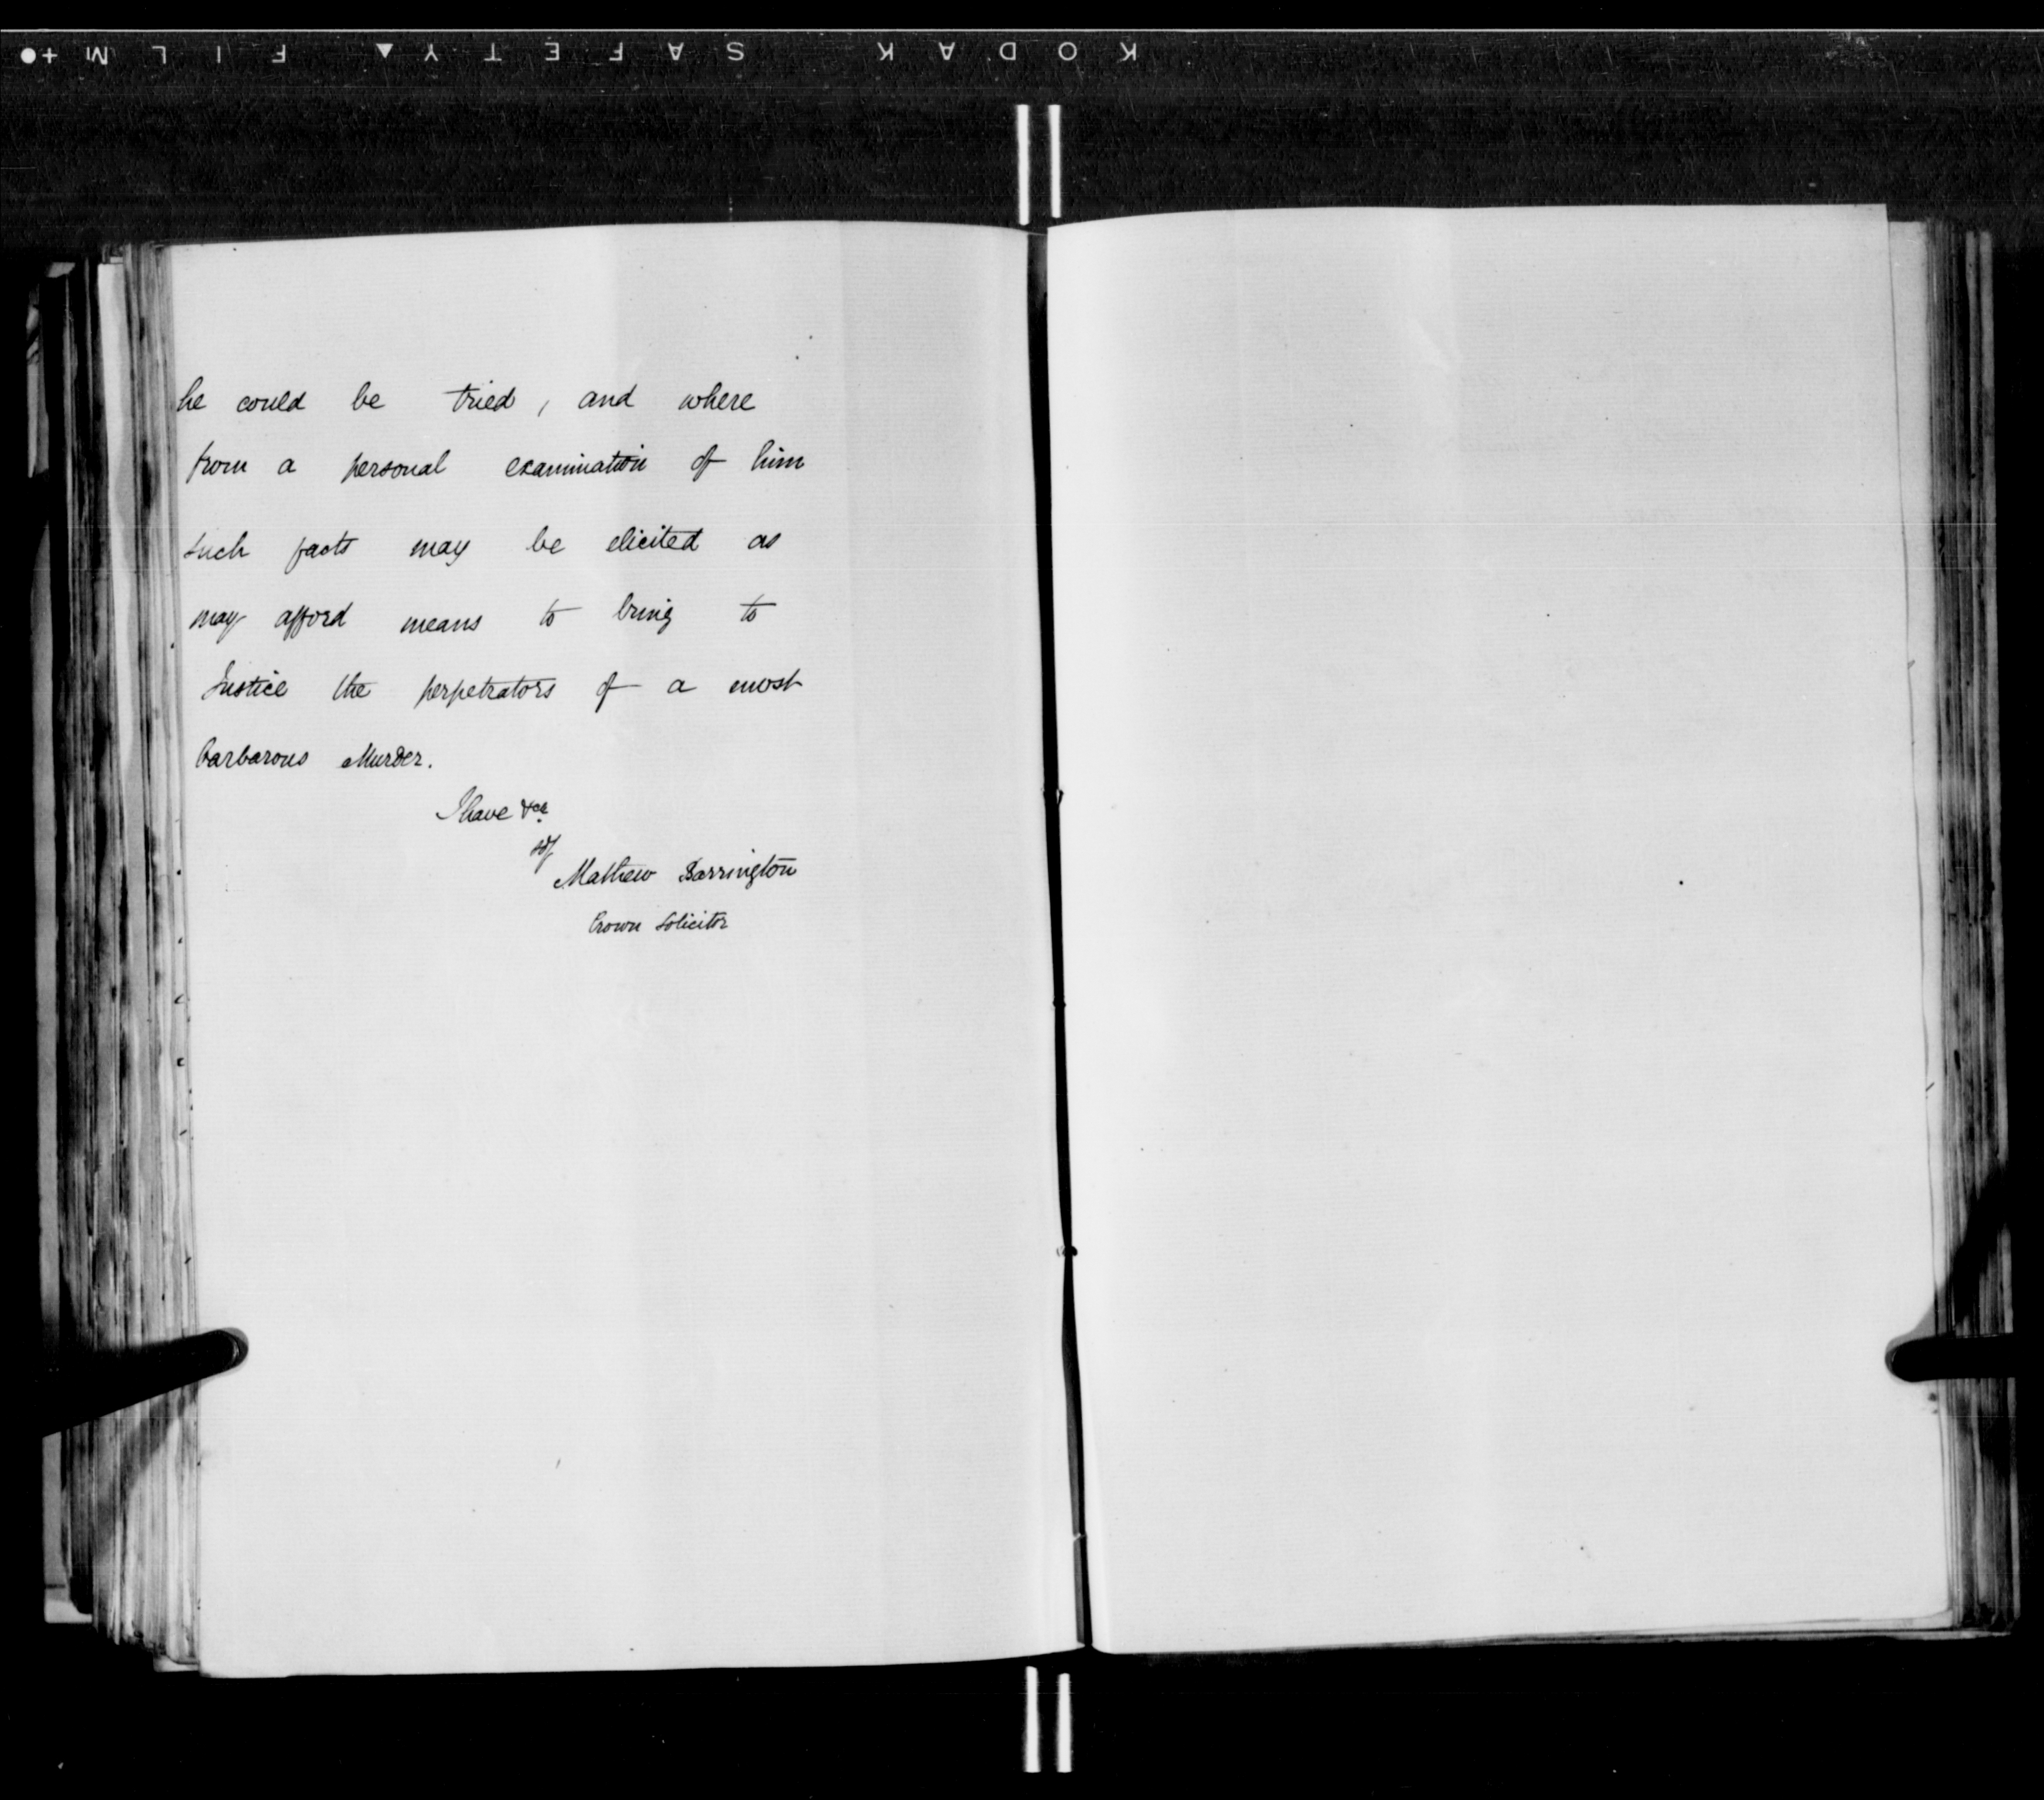 KODAK SAFETY ▲ FILM + ●
he could be tried, and where
from a personal examination of him
such facts may be elicited as
may afford means to bring to
Justice the perpetrators of a most
barbarous Murder.
I have &ca
sd/
Mathew Barrington
Crown Solicitor